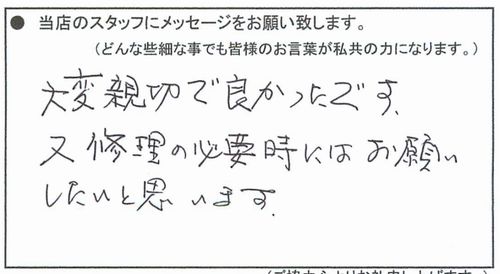 ● 当店のスタッフにメッセージをお願い致します。
(どんな些細な事でも皆様のお言葉が私共の力になります。)
大変親切で良かったです.
又修理の必要時にはお願い
したいと思います.